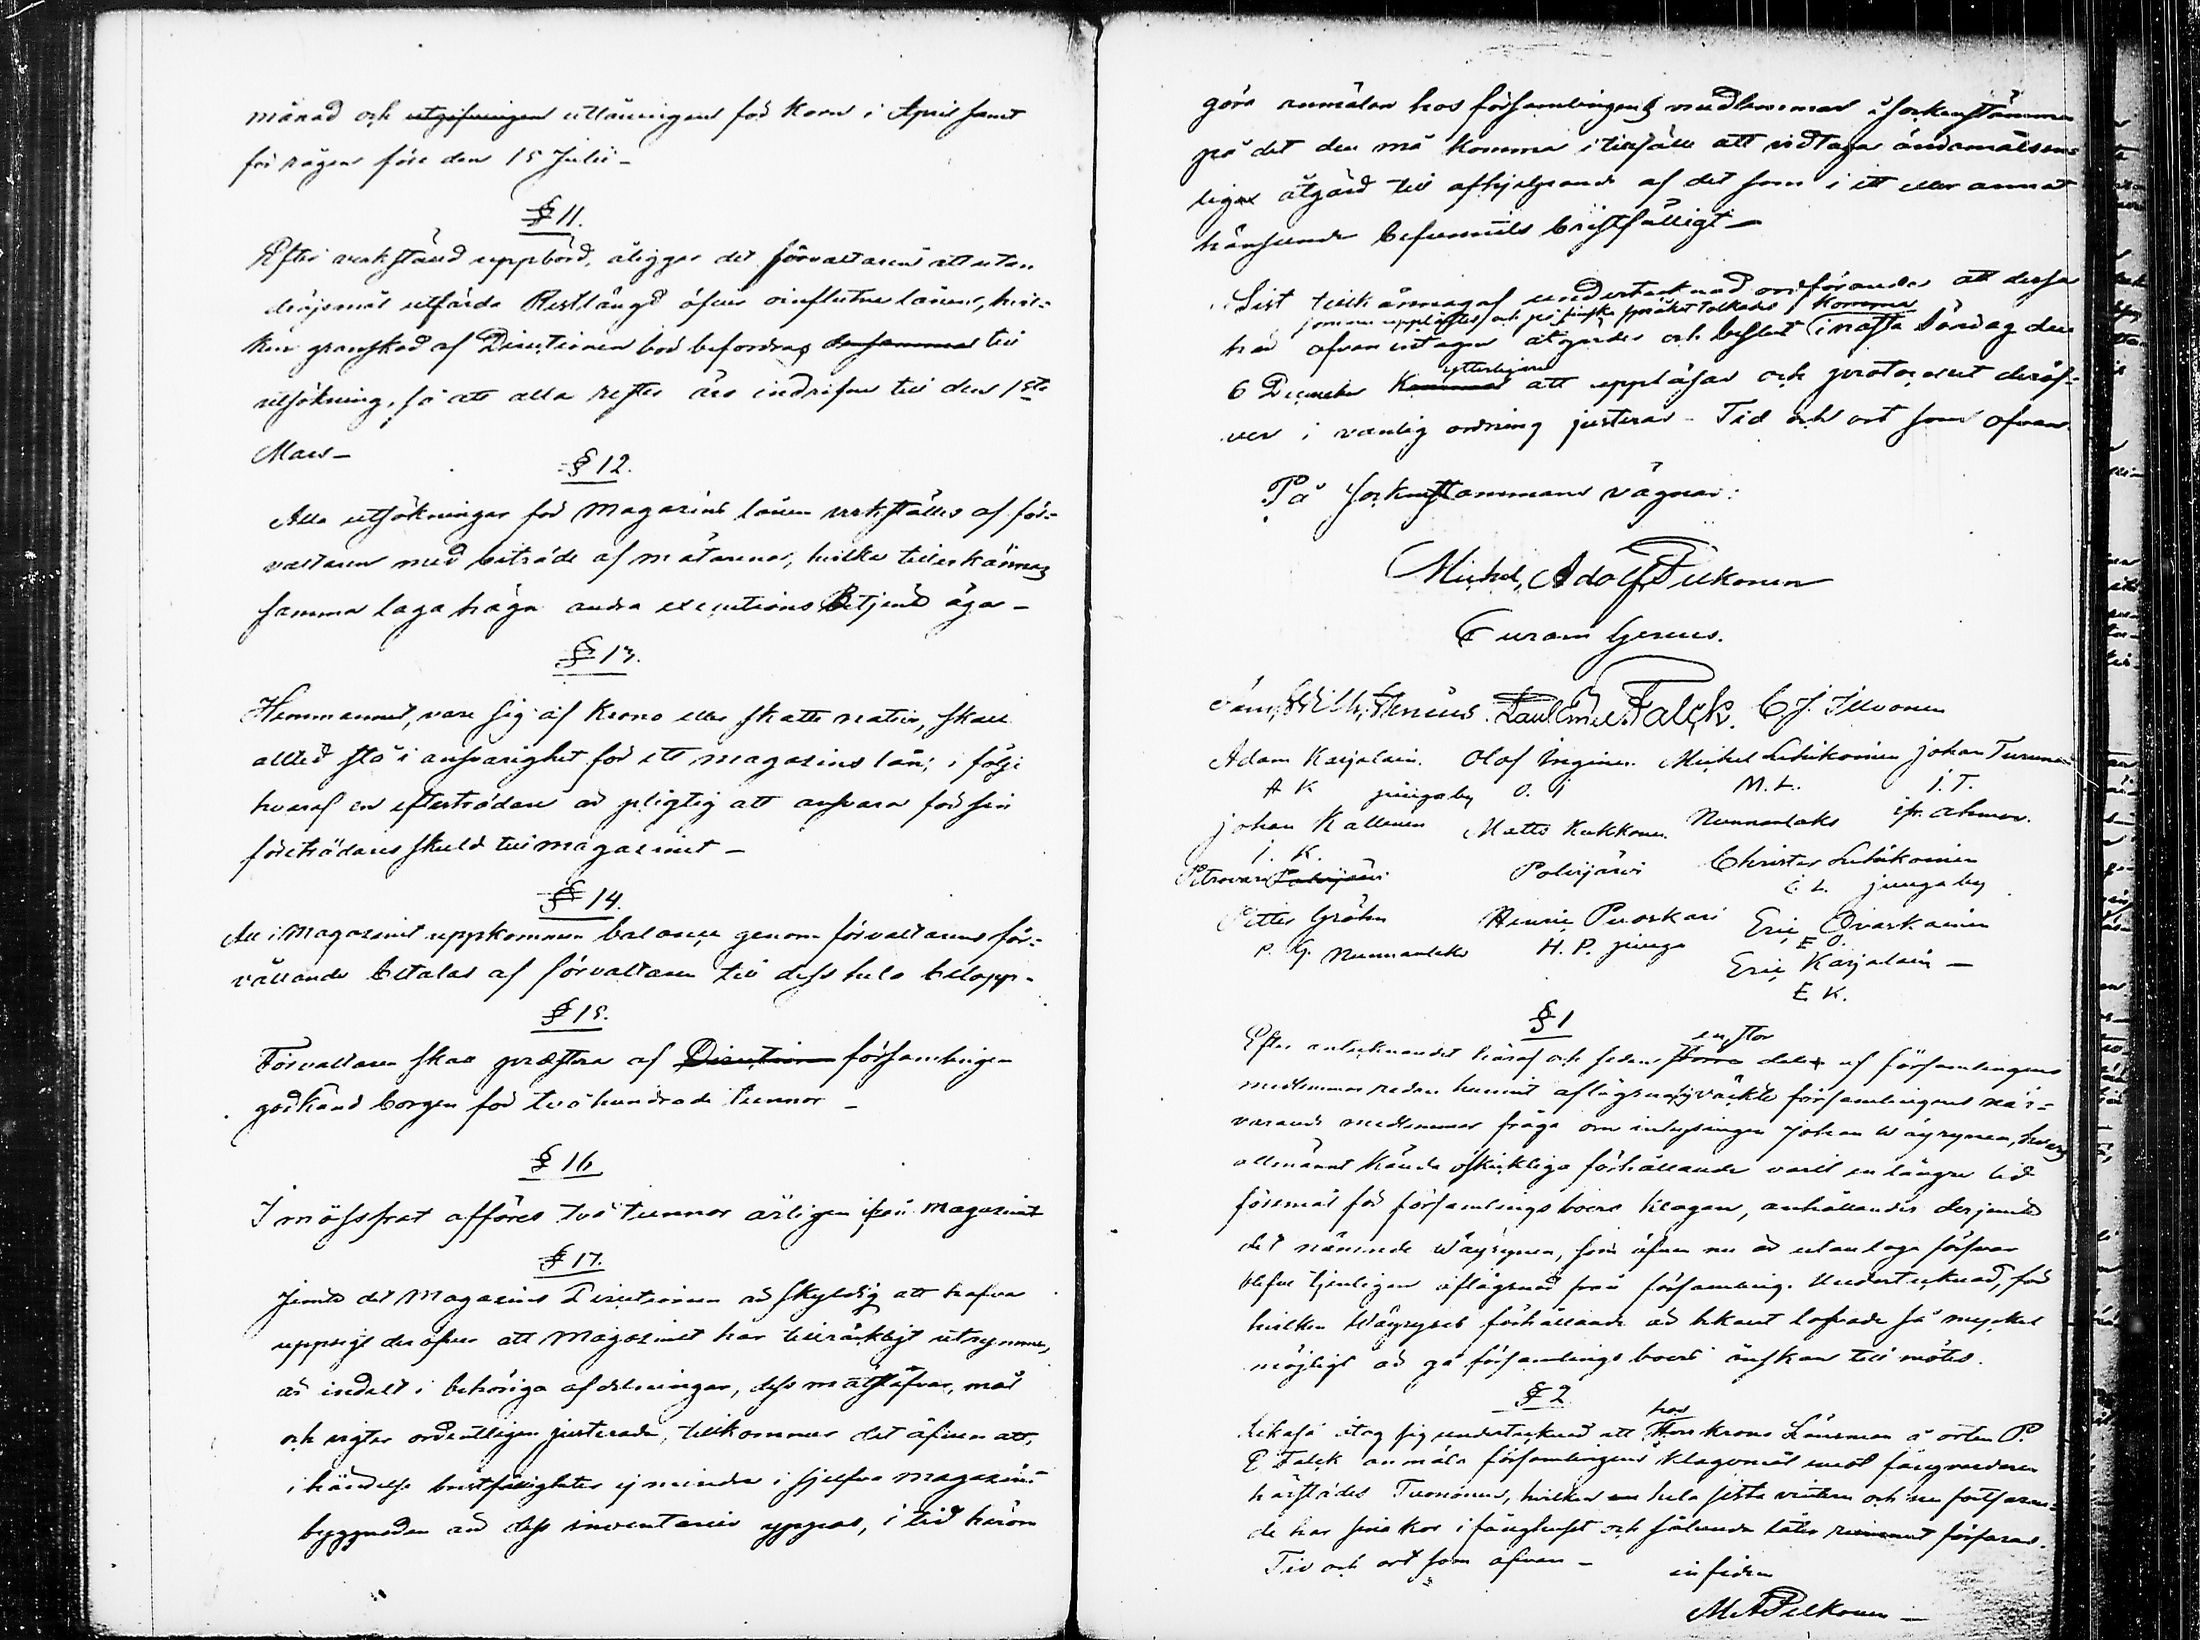 månad och utgifningen utlåningen för Korn i April samt
för rågen före den 15 Julii –
§ 11.
Efter verkstäld uppbörd, åligger det förvaltaren att utan
dröjsmål utfärda Restlängd öfver oinflutne lånen, hvil-
ken granskad af Directionen bör befordras densamma till
utsökning, så att alla rester äro indrifne till den 1sta
Mars –
§ 12.
Alla utsökningar för Magazins lånen verkställes af för-
valtaren med biträde af mätarena, hvilka tillerkännas
samma laga hägn andra executions Betjente äga –
§ 13.
Hemmanet, vare sig af Krono eller skatte natur, skall
alltid stå i ansvarighet för ett magazins lån; i följe
hvaraf en efterträdare är pligtig att ansvara för sin
företrädares skuld till magazinet –
§ 14.
All i Magazinet uppkommen balance genom förvaltarens för-
vållande betalas af förvaltaren till dess hela belopp –
§ 15.
Förvaltaren skall præstera af Direction församlingen
godkänd borgen för två hundrade tunnor –
§ 16
I mössfrat afföres två tunnor årligen ifrån Magazinet
§ 17.
Jemte det Magazins Directionen är skyldig att hafva
uppsigt deröfver att Magazinet har tillräckligt utrymme,
är indelt i behöriga afdelningar, dess mått, mål
och vigter ordentligen justerade, tillkommer det äfven att,
i händelse bristfälligheter ej mindre i sjelfva magazins
byggnaden än dess inventarier yppas, i tid härom
göra anmälan hos församlingens medlemmar å sockenstämma
på det den må komma i tillfälle att vidtaga ändamålsen-
liga åtgärd till afhjelpande af det som i ett eller annat
hänseende befunnits bristfälligt –
Sist tillkännagaf undertecknad ordförande att dessa
som nu upplästes och på finska språket tolkades Komma
här ofvan intagna åtgärder och beslut i nästa Söndag den
ytterligare
6 December Kommer att uppläsas och protocollet deröf-
ver i vanlig ordning justeras – Tid och ort som ofvan
På Sockenstämmans vägnar:
Michel Adolf Pelkonen
Curam Gerens.
Paul Emil Falck. C J Ilvonen
Adam Karjalain. Olof Inginen. Michel Lehikoinen Johan Turunen
A K junga by O. I M. L. I. T.
Johan Kallenen Matts Kukkonen Nunnanlaks
I. K.
Petrovara Polvijärvi Polvijärvi Christer Lehikoinen
C L. junga by
Petter Gröhn Henric Puoskari Eric Ovaskainen
P. G. Nunnanlaks H. P. junga E O.
Eric Karjalain –
E K.
§ 1
en stor
Efter antecknandet häraf och sedan större delen af församlingens
medlemmar redan hunnit aflägsna sig väckte församlingens när-
varande medlemmar fråga om inhysingen Johan Wäyrynen, hvars
allmännt kända oskickliga förhållande varit en längre tid
föremål för församlingsboers klagan, anhållandes derjemte
det nämnde Wäyrynen, som äfven nu är utan laga försvar
blefve tjenligen aflägsnad från församling. Undertecknad, för
hvilken Wäyrynens förhållande är bekant lofvade så mycket
möjligt är gå församlings boers önskan till mötes.
§ 2
hos
Likaså åtog sig undertecknad att Herr Krono Länsman å orten P.
E Falck anmäla församlingens klagomål emot fångvardaren
härstädes Tuononen, hvilken hela sista vintern och nu fortfaran-
de har sina kor i fånghuset och sålunda låter rummet förfaras.
Tid och ort som ofvan –
in fidem
M A Pelkonen –